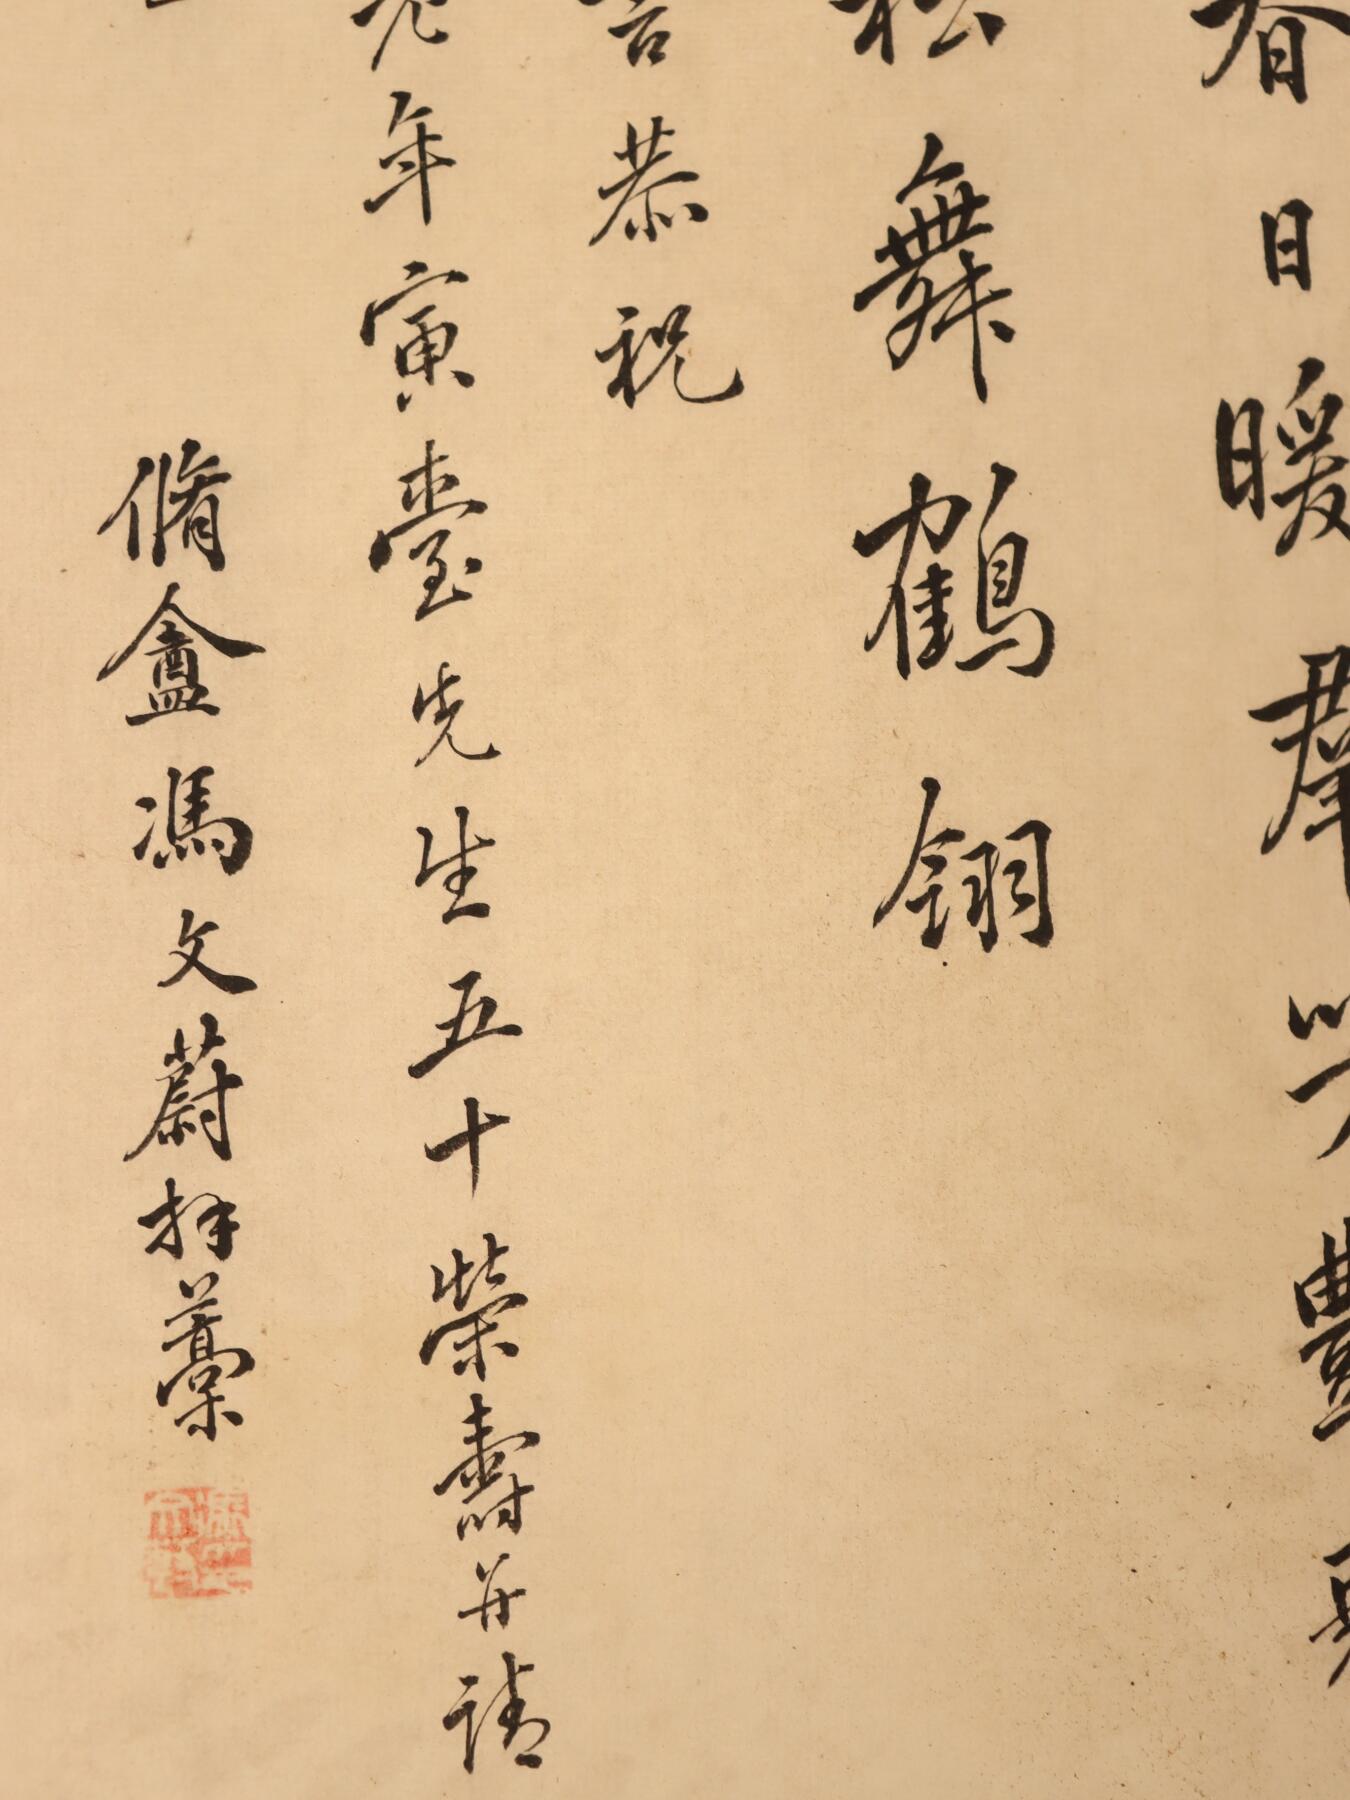 春日暖群
松舞鶴翎
言恭祝
年寅臺先生五十榮壽并請
脩盦馮文蔚拜藁